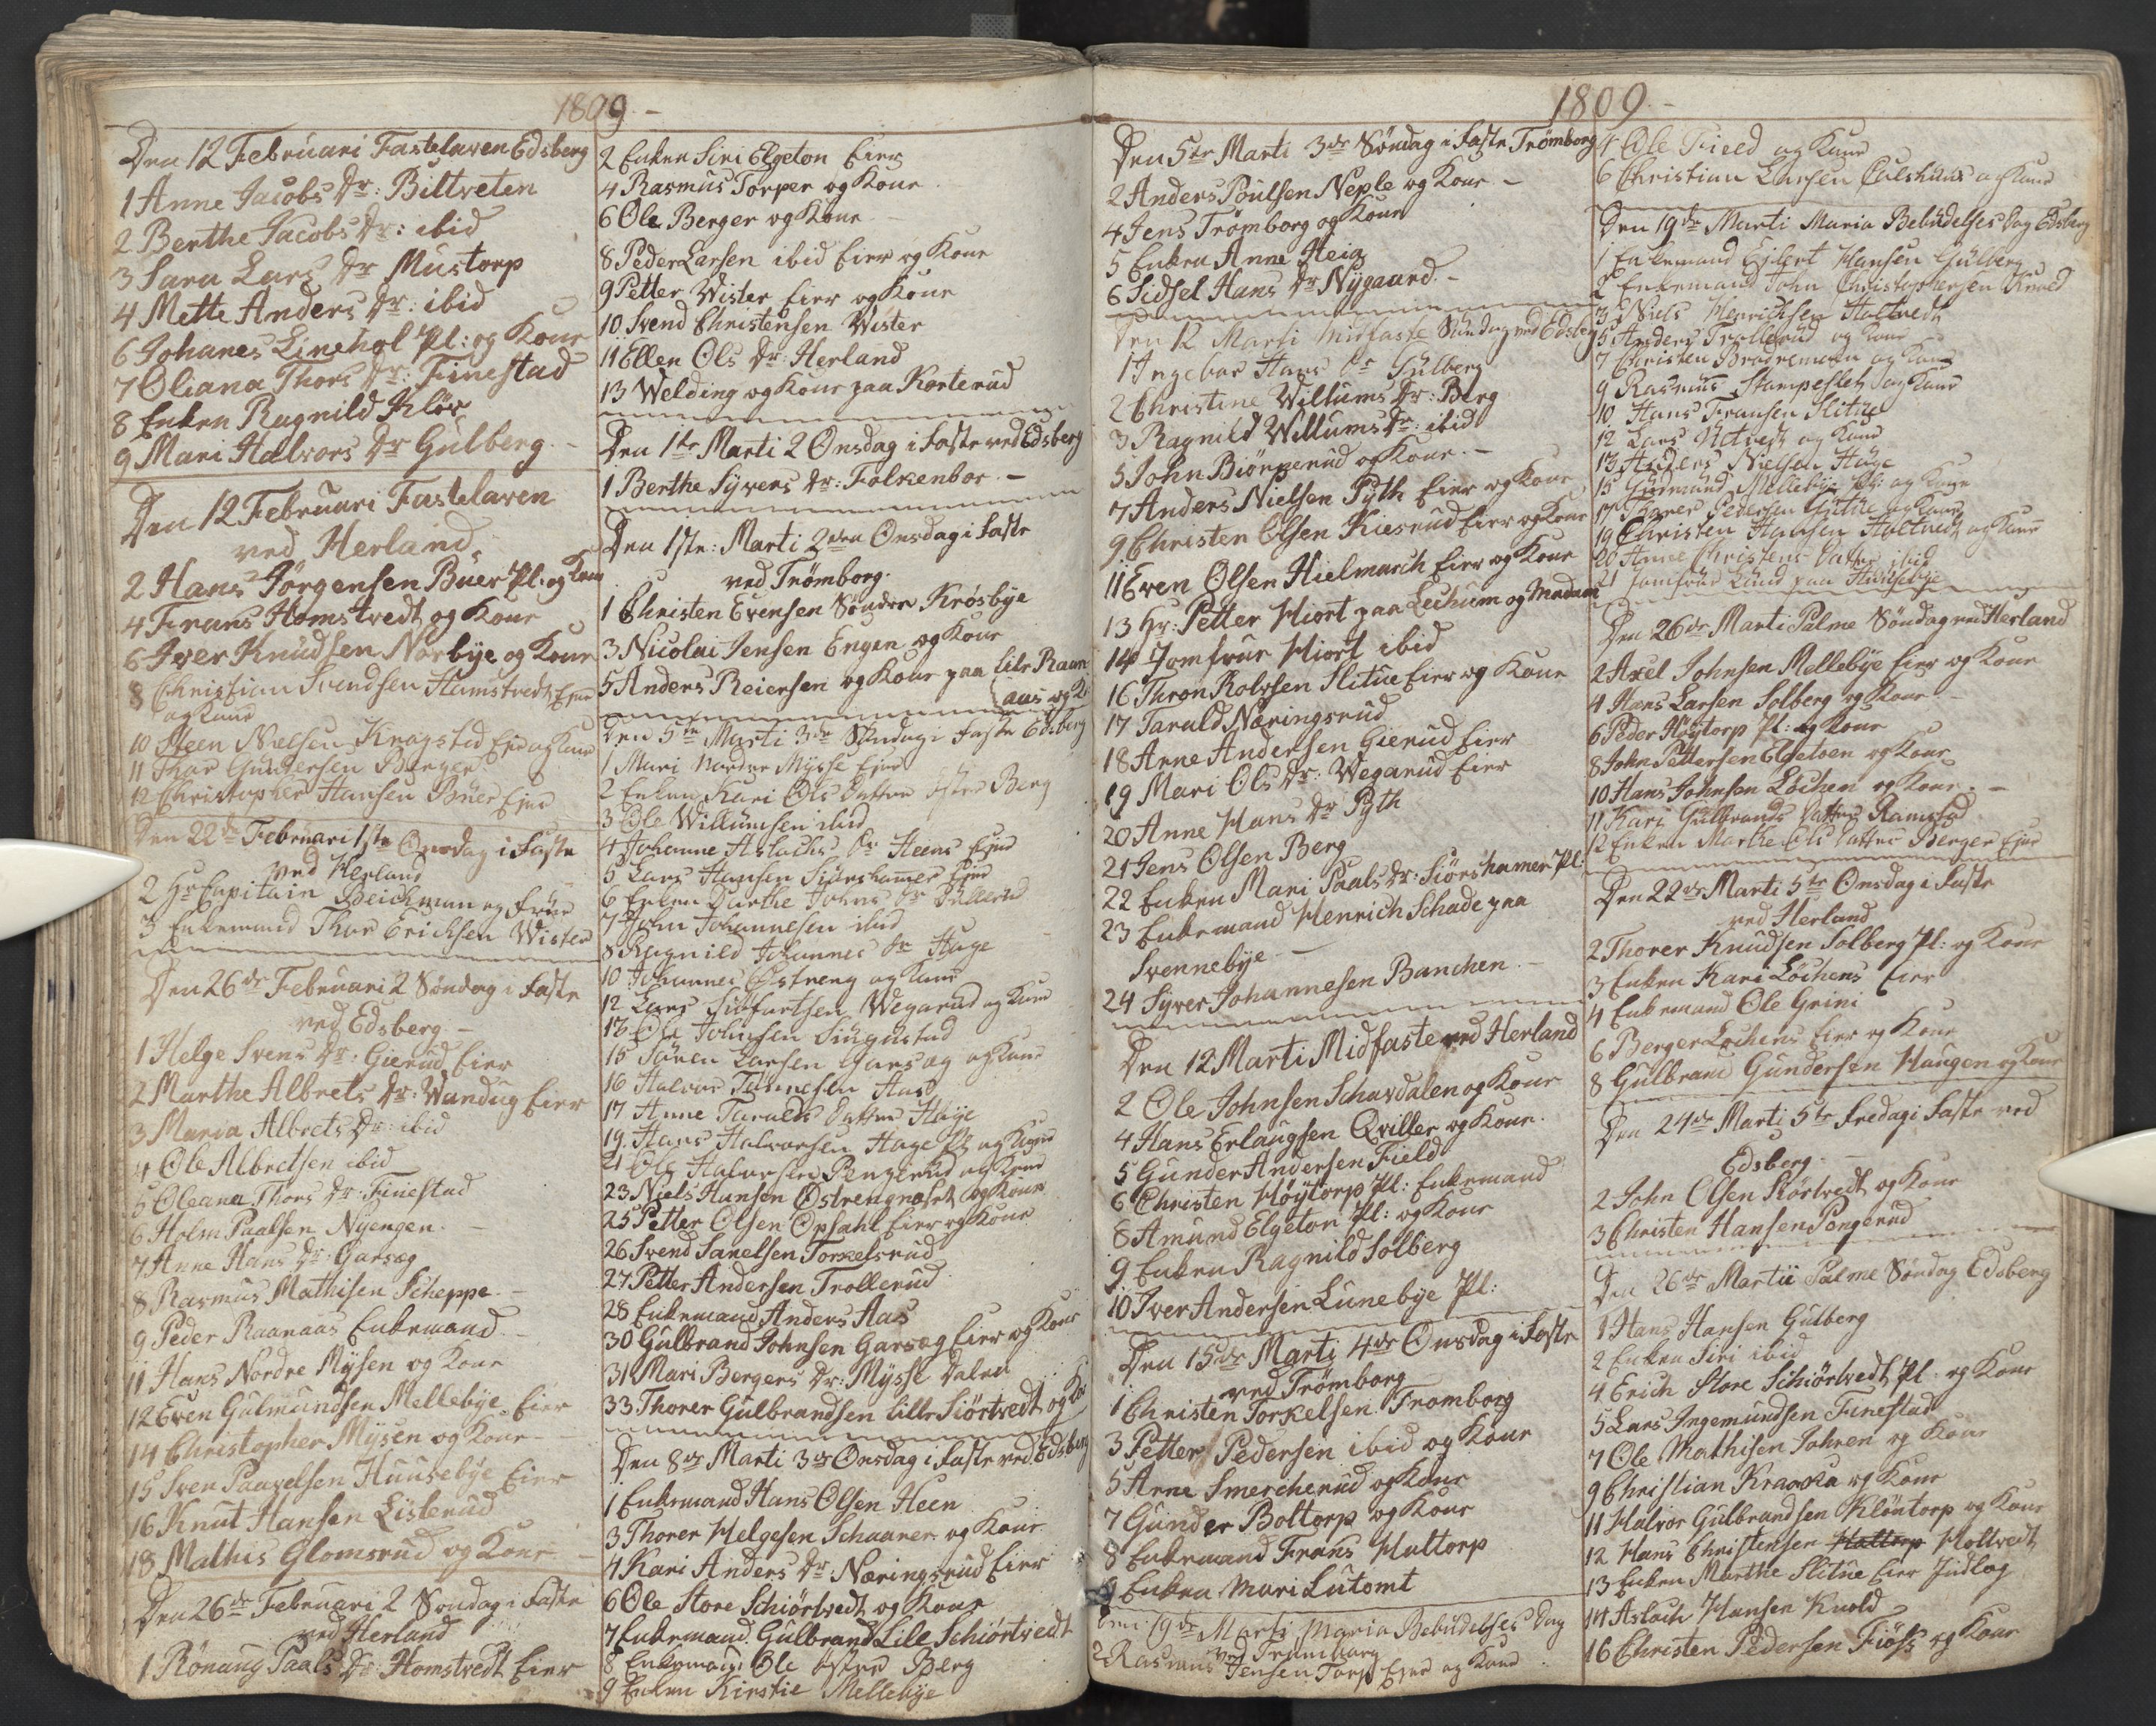 1809.-
Den 12 Februari Fastelaven Edsberg
1 Anne Jacobs Dr: Biltveten
2 Berthe Jacobs Dr: ibid
3 Sara Lars Dr Mustorp
4 Mette Anders Dr: ibid
6 Johanes Linehol Pl: og Kone
7 Oliana Thors Dr: Finestad
8 Enken Ragnild Klör
9 Mari Halvors Dr Gulberg.-
Den 12 Februari Fastelaven
ved Herland
2 Hans Jörgensen Buer Pl: og Kone
4 Frans Homstvedt og Kone
6 Iver Knudsen Norbye og Kone
8 Christian Svendsen Hamstvedt Ejer
og Kone
10 Steen Nielsen Kragstad Ejer og Kone
11 Thor Gundersen Berger
12 Christopher Hansen Buer Ejer
Den 22de Februari 1ste Onsdag i Faste
ved Herland
2 Hr Capitain Beichman og Frue
3 Enkemand Thor Erichsen Wister
Den 26de Februari 2 Söndag i Faste
ved Edsberg.-
1 Helge Svens Dr: Gierud Eier
2 Marthe Albrets Dr: Wandug Eier
3 Maria Albrets Dr: ibid
4 Ole Albretsen ibid
5 Oleana Thors Dr: Finestad
6 Holm Paalsen Nyengen.-
7 Anne Hans Dr: Garsæg
8 Rasmus Mathisen Scheppe.-
9 Peder Raanaas Enkemand
11 Hans Nordre Mysen og Kone
12 Even Gulmundsen Mellebye Eier
14 Christopher Mysen og Kone
15 Sven Paavelsen Huusebye Eier
16 Knut Hansen Listerud
18 Mathis Glomsrud og Kone
Den 26de Februari 2 Söndag i Faste
ved Herland
1 Rönaug Paals Dr: Homstvedt Eier
2 Enken Siri Elgeton Eier
4 Rasmus Torper og Kone
6 Ole Berger og Kone
8 Peder Larsen ibid Eier og Kone
9 Petter Wister Eier og Kone
10 Svend Christensen Wister
11 Ellen Ols Dr: Herland
13 Welding og Kone paa Korterud
Den 1ste Marti 2 Onsdag i Faste ved Edsberg
1 Berthe Syvers Dr: Folkenbor.-
Den 1ste: Marti 2den Onsdag i Faste
ved Trömborg.
1 Christen Evensen Söndre Krösbye
3 Nicolai Jensen Engen og Kone
5 Anders Reiersen og Kone paa Lile Raan
aas og K
Den 5te Marti 3de Söndag i Faste Edsberg
1 Mari Nordre Mysse Ejer
2 Enken Kari Ols Datter östre Berg
3 Ole Willumsen ibid
4 Johanne Aslachs Dr Heens Ejer
5 Lars Hansen Siørshamer Ejer
6 Enken Dorthe Johns Dr
7 John Johannesen ibid
8 Ragnild Johannes Dr Hage
10 Johannes Østreng og Kone
12 Lars Sulfartsen Wegarud og Kone
13 Ole Johnsen Singustad
15 Sören Larsen Garsæg og Kone
16 Halvor Tönnesen Aas
17 Anne Taralds Datter Hage
19 Hans Halvorsen Hage Pl og Kone
21 Ole Halvorsen Pengerud og Kone
23 Niels Hansen Östrengnæset og Kone
25 Petter Olsen Opsahl Eier og Kone
26 Svend Sanelsen Torkelsrud
27 Petter Andersen Trollerud
28 Enkemand Anders Aas
30 Gulbrand Johnsen Garsæg Eier og Kone
31 Mari Bergers Dr: Mysse Dalen
33 Thorer Gulbrandsen Lille Siörtvedt og Ko
Den 8de Marti 3de Onsdag i Faste ved Edsberg
1 Enkemand Hans Olsen Heen
3 Thorer Helgesen Schaarer og Kone
4 Kari Anders Dr: Næringsrud Eier
6 Ole Store Schiörtvedt og Kone
7 Enkemand Gulbrand Lile Schiörtvedt
8 Enkemand Ole östre Berg
9 Enken Kirstie Mellebye
1809.-
Den 5te Marti 3de Söndag i Faste Trömborg
2 Anders Poulsen Neple og Kone -
4 Jens Trömborg og Kone
5 Enken Anne Heia
6 Sidsel Hans Dr Nygaard.-
Den 12 Marti Midfaste Söndag ved Edsberg
1 Ingebor Hans Dr Gulberg
2 Christine Willums Dr: Berg
3 Ragnild Willums Dr: ibid
5 John Biörnerud og Kone.-
7 Anders Nielsen Pyth Eier og Kone
9 Christen Olsen Kiesrud Eier og Kone
11 Even Olsen Hielmarch Eier og Kone
13 Hr: Petter Hiort paa Lechum og Madam
14 Jomfrue Hiort ibid
16 Thron Rolvsen Slitue Eier og Kone
17 Tarald Næringsrud
18 Arne Andersen Gierud Eier
19 Mari Ols Dr: Wegarud Eier
20 Anne Hans Dr Pyth
21 Jens Olsen Berg
22 Enken Mari Paals Dr: Siörshamer Pl:
23 Enkemand Henrich Schade paa
Svennebye -
24 Syver Johannesen Banchen.-
Den 12 Marti Midfaste ved Herland
2 Ole Johnsen Schavdalen og Kone
4 Hans Erlaugsen Qviller og Kone.
5 Gunder Andersen Field
6 Christen Höytorp Pl: Enkemand
8 Amund Elgeton Pl: og Kone
9 Enken Ragnild Solberg
10 Iver Andersen Lunebye Pl:
Den 15de Marti 4de Onsdag i Faste
ved Trömborg
1 Christen Torkelsen Tromborg
3 Petter Pedersen ibid og Kone
5 Arne Smercherud og Kone
7 Gunder Boltorp og Kone
8 Enkemand Frans Huttorp
9 Enken Mari Lutomt
Den 19de Marti Maria Bebudelses Dag
ved Trömborg
2 Rasmus Jensen Torp Ejer og Kone
4 Ole Field og Kone
6 Christian Larsen Culshuus og Kone
Den 19de Marti Maria Bebudelses Dag Edsberg
1 Enkemand Eilert Hansen Gulberg
2 Enkemand John Christophersen Knold
3 Niels Henrichsen Holtvedt
5 Anders Trollerud og Kone
7 Christen Brødremoen og Kone
9 Rasmus Stampeslet og Kone
10 Hans Fransen Slitue
12 Lars Notvedt og Kone
13 Anders Nielsen Hage
15 Gudmund Mellebye Pl: og Kone
17 Pedersen Slitue og Kone
19 Christen Hansen Holtvedt og Kone
20 Anne Christens Datter ibid
21 Jomfrue Lund paa Huusebye
Den 26de Marti Palme Söndag ved Herland
2 Axel Johnsen Mellebye Eier og Kone
4 Hans Larsen Solberg og Kone -
6 Peder Höytorp Pl: og Kone
8 John Pettersen Elgetoen og Kone
10 Hans Johnsen Löchen og Kone.-
11 Kari Gulbrands Datter Ramstad
12 Enken Marthe Ols Datter Berger Ejer
Den 22de Marti 5te Onsdag i Faste
ved Herland
2 Thorer Knudsen Solberg Pl: og Kone
3 Enken Kari Löchens Eier
4 Enkemand Ole Grini
6 Berger Lochens Eier og Kone
8 Gulbrand Gundersen Haugen og Kone
Den 24de Marti 5te Fredag i Faste ved
Edsberg -
2 John Olsen Skörtvedt og Kone
3 Christen Hansen Pengerud
Den 26de Martii Palme Søndag Edsberg
1 Hans Hansen Gulberg
2 Enken Siri ibid
4 Erich Store Schiörtvedt Pl og Kone
5 Lars Ingemundsen Finestad
7 Ole Mathisen Johren og Kone
9 Christian Kraaka og Kone
11 Halvor Gulbrandsen Klöntorp og Kone
12 Hans Christensen Hattorp Holtvedt
13 Enken Marthe Slitue Eier Indlag
14 Aslach Hansen Knold
16 Christen Pedersen Fiöss og Kone